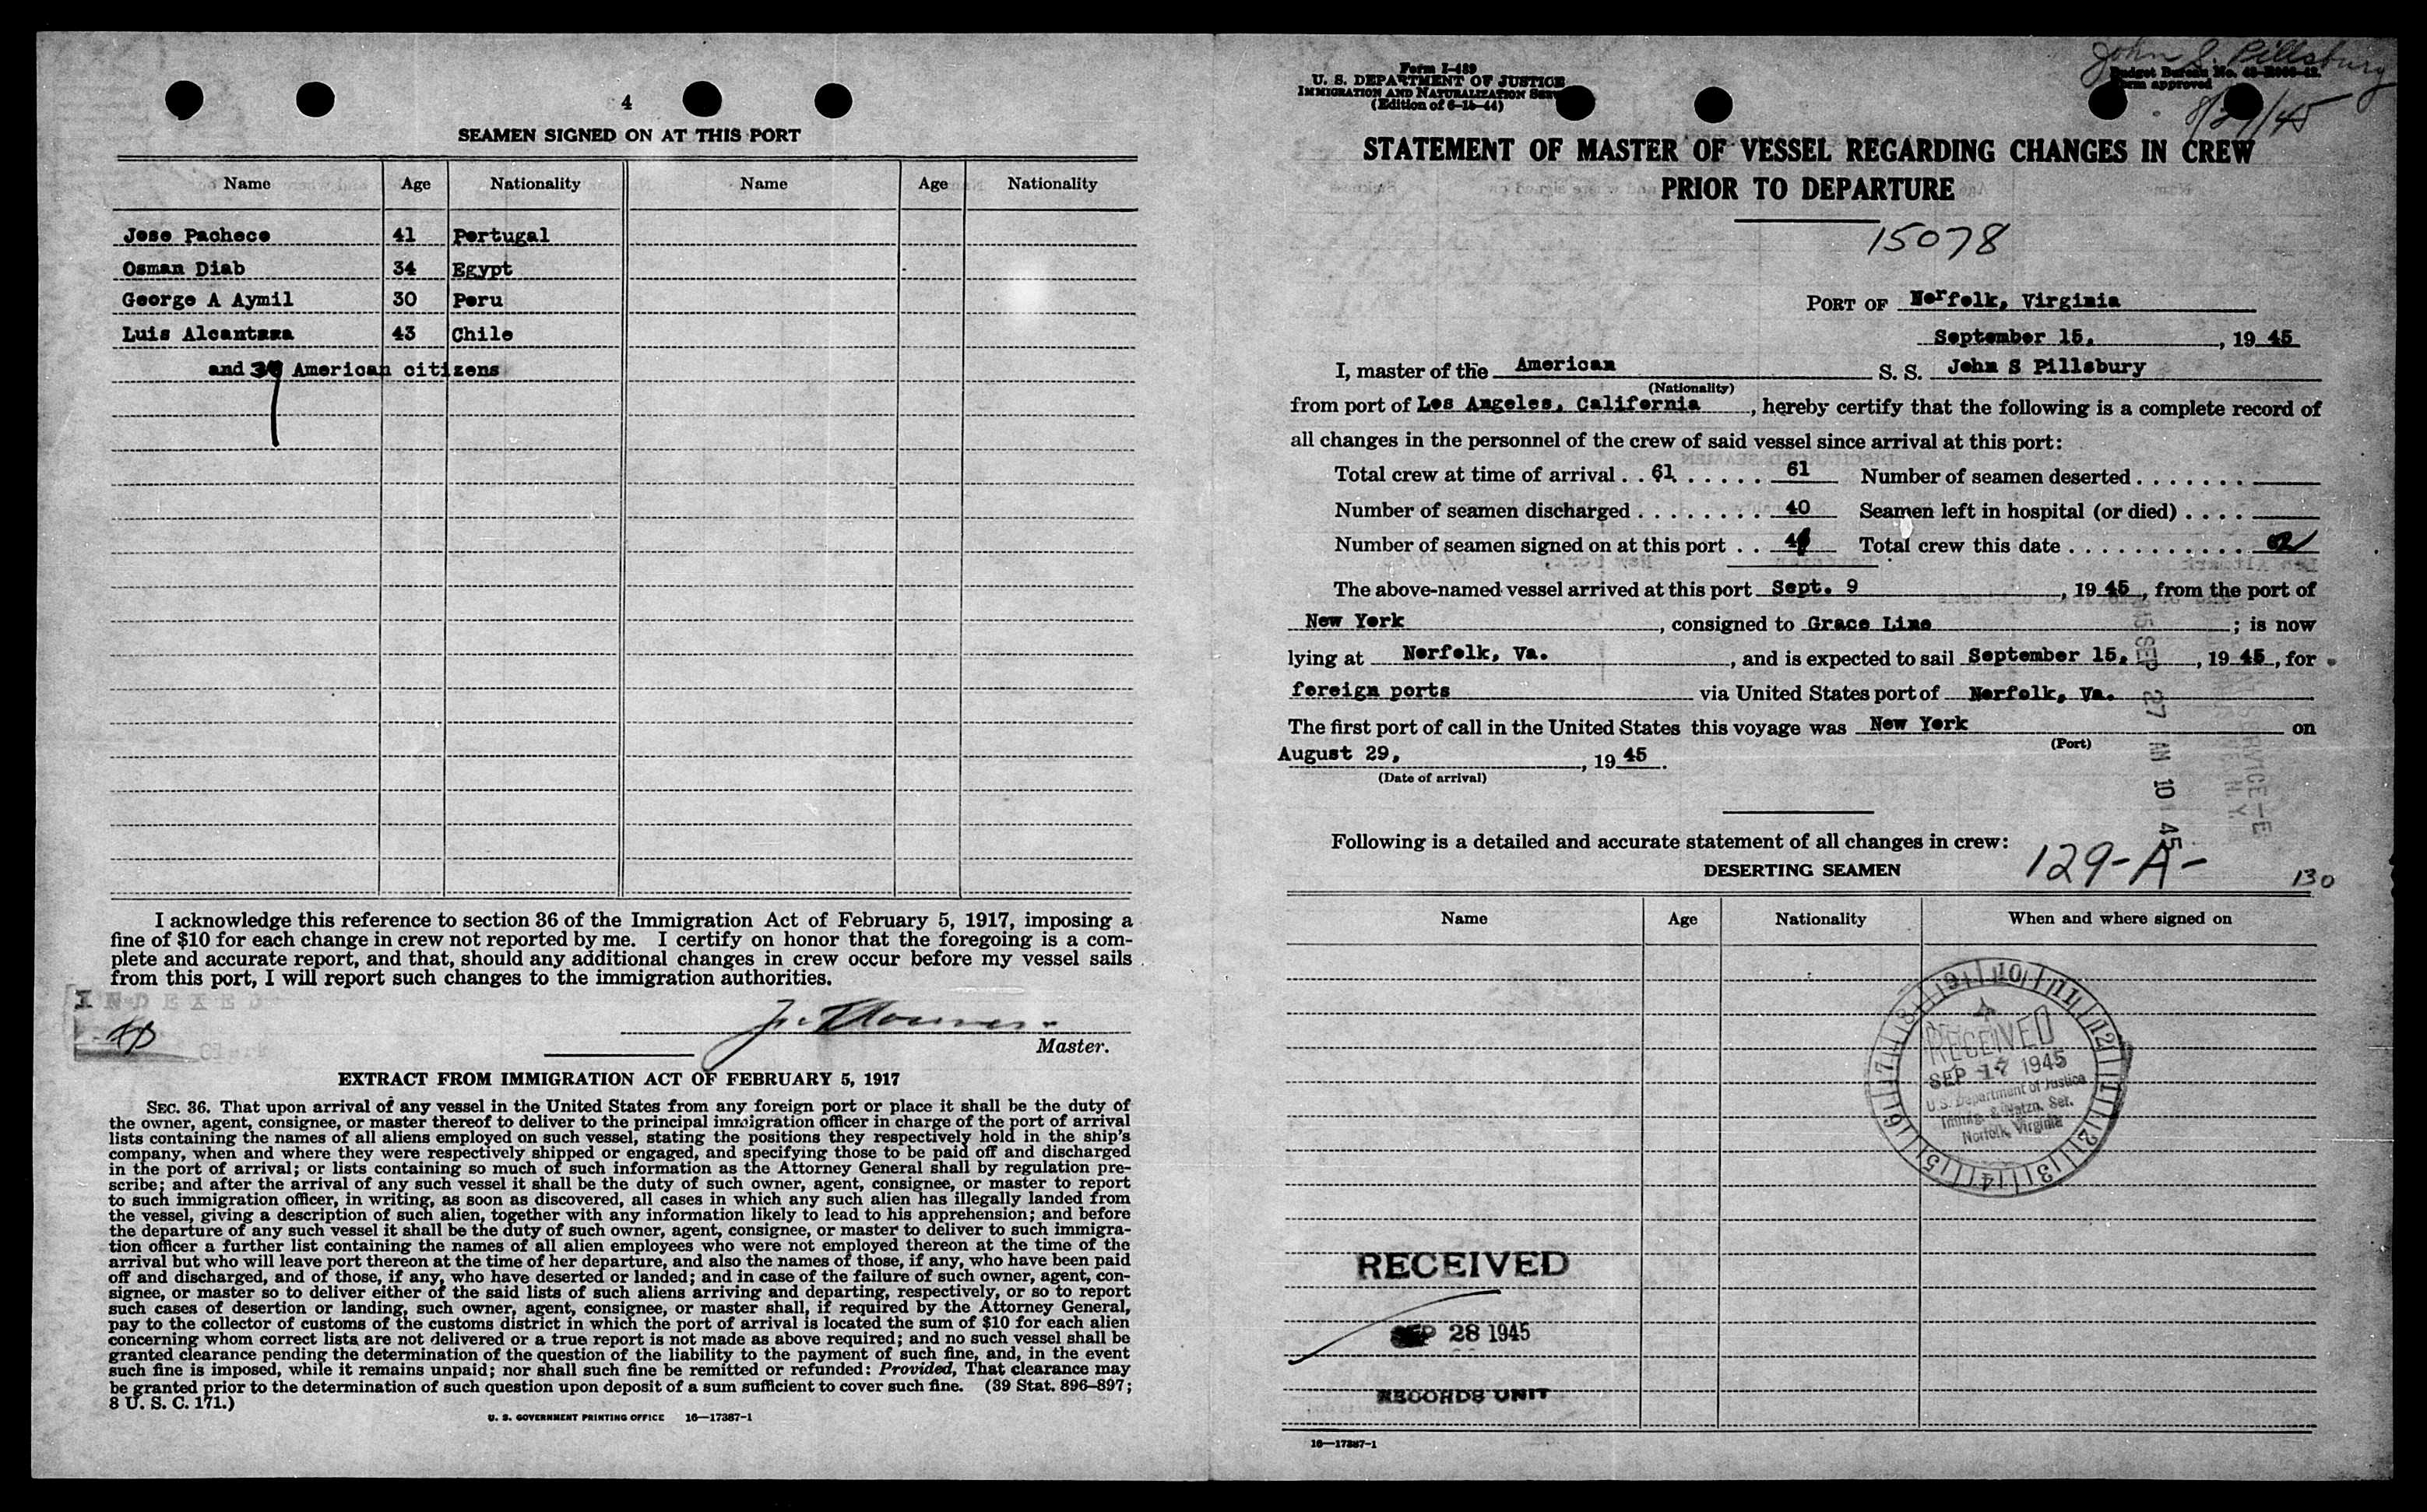 4
SEAMEN SIGNED ON AT THIS PORT
Name Age Nationality Name Age Nationality
Jose Pacheco 41 Portugal
Osman Diab 34 Egypt
George A Aymil 30 Peru
Luis Alcantara 43 Chile
and American citizens
I acknowledge this reference to section 36 of the Immigration Act of February 5, 1917, imposing a
fine of $10 for each change in crew not reported by me. I certify on honor that the foregoing is a com-
plete and accurate report, and that, should any additional changes in crew occur before my vessel sails
from this port, I will report such changes to the immigration authorities.
INDEXED
Clerk
Master.
EXTRACT FROM IMMIGRATION ACT OF FEBRUARY 5, 1917
SEC. 36. That upon arrival of any vessel in the United States from any foreign port or place it shall be the duty of
the owner, agent, consignee, or master thereof to deliver to the principal immigration officer in charge of the port of arrival
lists containing the names of all aliens employed on such vessel, stating the positions they respectively hold in the ship's
company, when and where they were respectively shipped or engaged, and specifying those to be paid off and discharged
in the port of arrival; or lists containing so much of such information as the Attorney General shall by regulation pre-
scribe; and after the arrival of any such vessel it shall be the duty of such owner, agent, consignee, or master to report
to such immigration officer, in writing, as soon as discovered, all cases in which any such alien has illegally landed from
the vessel, giving a description of such alien, together with any information likely to lead to his apprehension; and before
the departure of any such vessel it shall be the duty of such owner, agent, consignee, or master to deliver to such immigra-
tion officer a further list containing the names of all alien employees who were not employed thereon at the time of the
arrival but who will leave port thereon at the time of her departure, and also the names of those, if any, who have been paid
off and discharged, and of those, if any, who have deserted or landed; and in case of the failure of such owner, agent, con-
signee, or master so to deliver either of the said lists of such aliens arriving and departing, respectively, or so to report
such cases of desertion or landing, such owner, agent, consignee, or master shall, if required by the Attorney General,
pay to the collector of customs of the customs district in which the port of arrival is located the sum of $10 for each alien
concerning whom correct lists are not delivered or a true report is not made as above required; and no such vessel shall be
granted clearance pending the determination of the question of the liability to the payment of such fine, and, in the event
such fine is imposed, while it remains unpaid; nor shall such fine be remitted or refunded: Provided, That clearance may
be granted prior to the determination of such question upon deposit of a sum sufficient to cover such fine. (39 Stat. 896-897;
8 U. S. C. 171.)
U. S. GOVERNMENT PRINTING OFFICE 16—17387-1
John S. Pillsbury
8/29/45
Form I-489
U. S. DEPARTMENT OF JUSTICE
IMMIGRATION AND NATURALIZATION
(Edition of 6-15-44)
Budget Bureau No.
Form approved
STATEMENT OF MASTER OF VESSEL REGARDING CHANGES IN CREW
PRIOR TO DEPARTURE
15078
PORT OF Norfolk, Virginia
September 15, , 19 45
I, master of the American S. S. John S Pillsbury
(Nationality)
from port of Los Angeles, California , hereby certify that the following is a complete record of
all changes in the personnel of the crew of said vessel since arrival at this port:
Total crew at time of arrival . . 61 . . . . . 61 Number of seamen deserted . . . . . . .
Number of seamen discharged . . . . . . . . 40 Seamen left in hospital (or died) . . . .
Number of seamen signed on at this port . . Total crew this date . . . . . . . . . . . . 62
The above-named vessel arrived at this port Sept. 9 , 19 45 , from the port of
New York , consigned to Grace Line ; is now
lying at Norfolk, Va. , and is expected to sail September 15, , 19 45 , for
foreign ports via United States port of Norfolk, Va.
The first port of call in the United States this voyage was New York on
(Port)
August 29, , 19 45 .
(Date of arrival)
45 SEP 27 AM 10 45
Following is a detailed and accurate statement of all changes in crew:
DESERTING SEAMEN 129-A- 130
Name Age Nationality When and where signed on
9 10 11 12 1 2 3 4 5 6 7 8
RECEIVED
SEP 17 1945
U.S. Department of Justice
Immig. & Natzn. Ser.
Norfolk, Virginia
RECEIVED
SEP 28 1945
RECORDS UNIT
16—17387-1